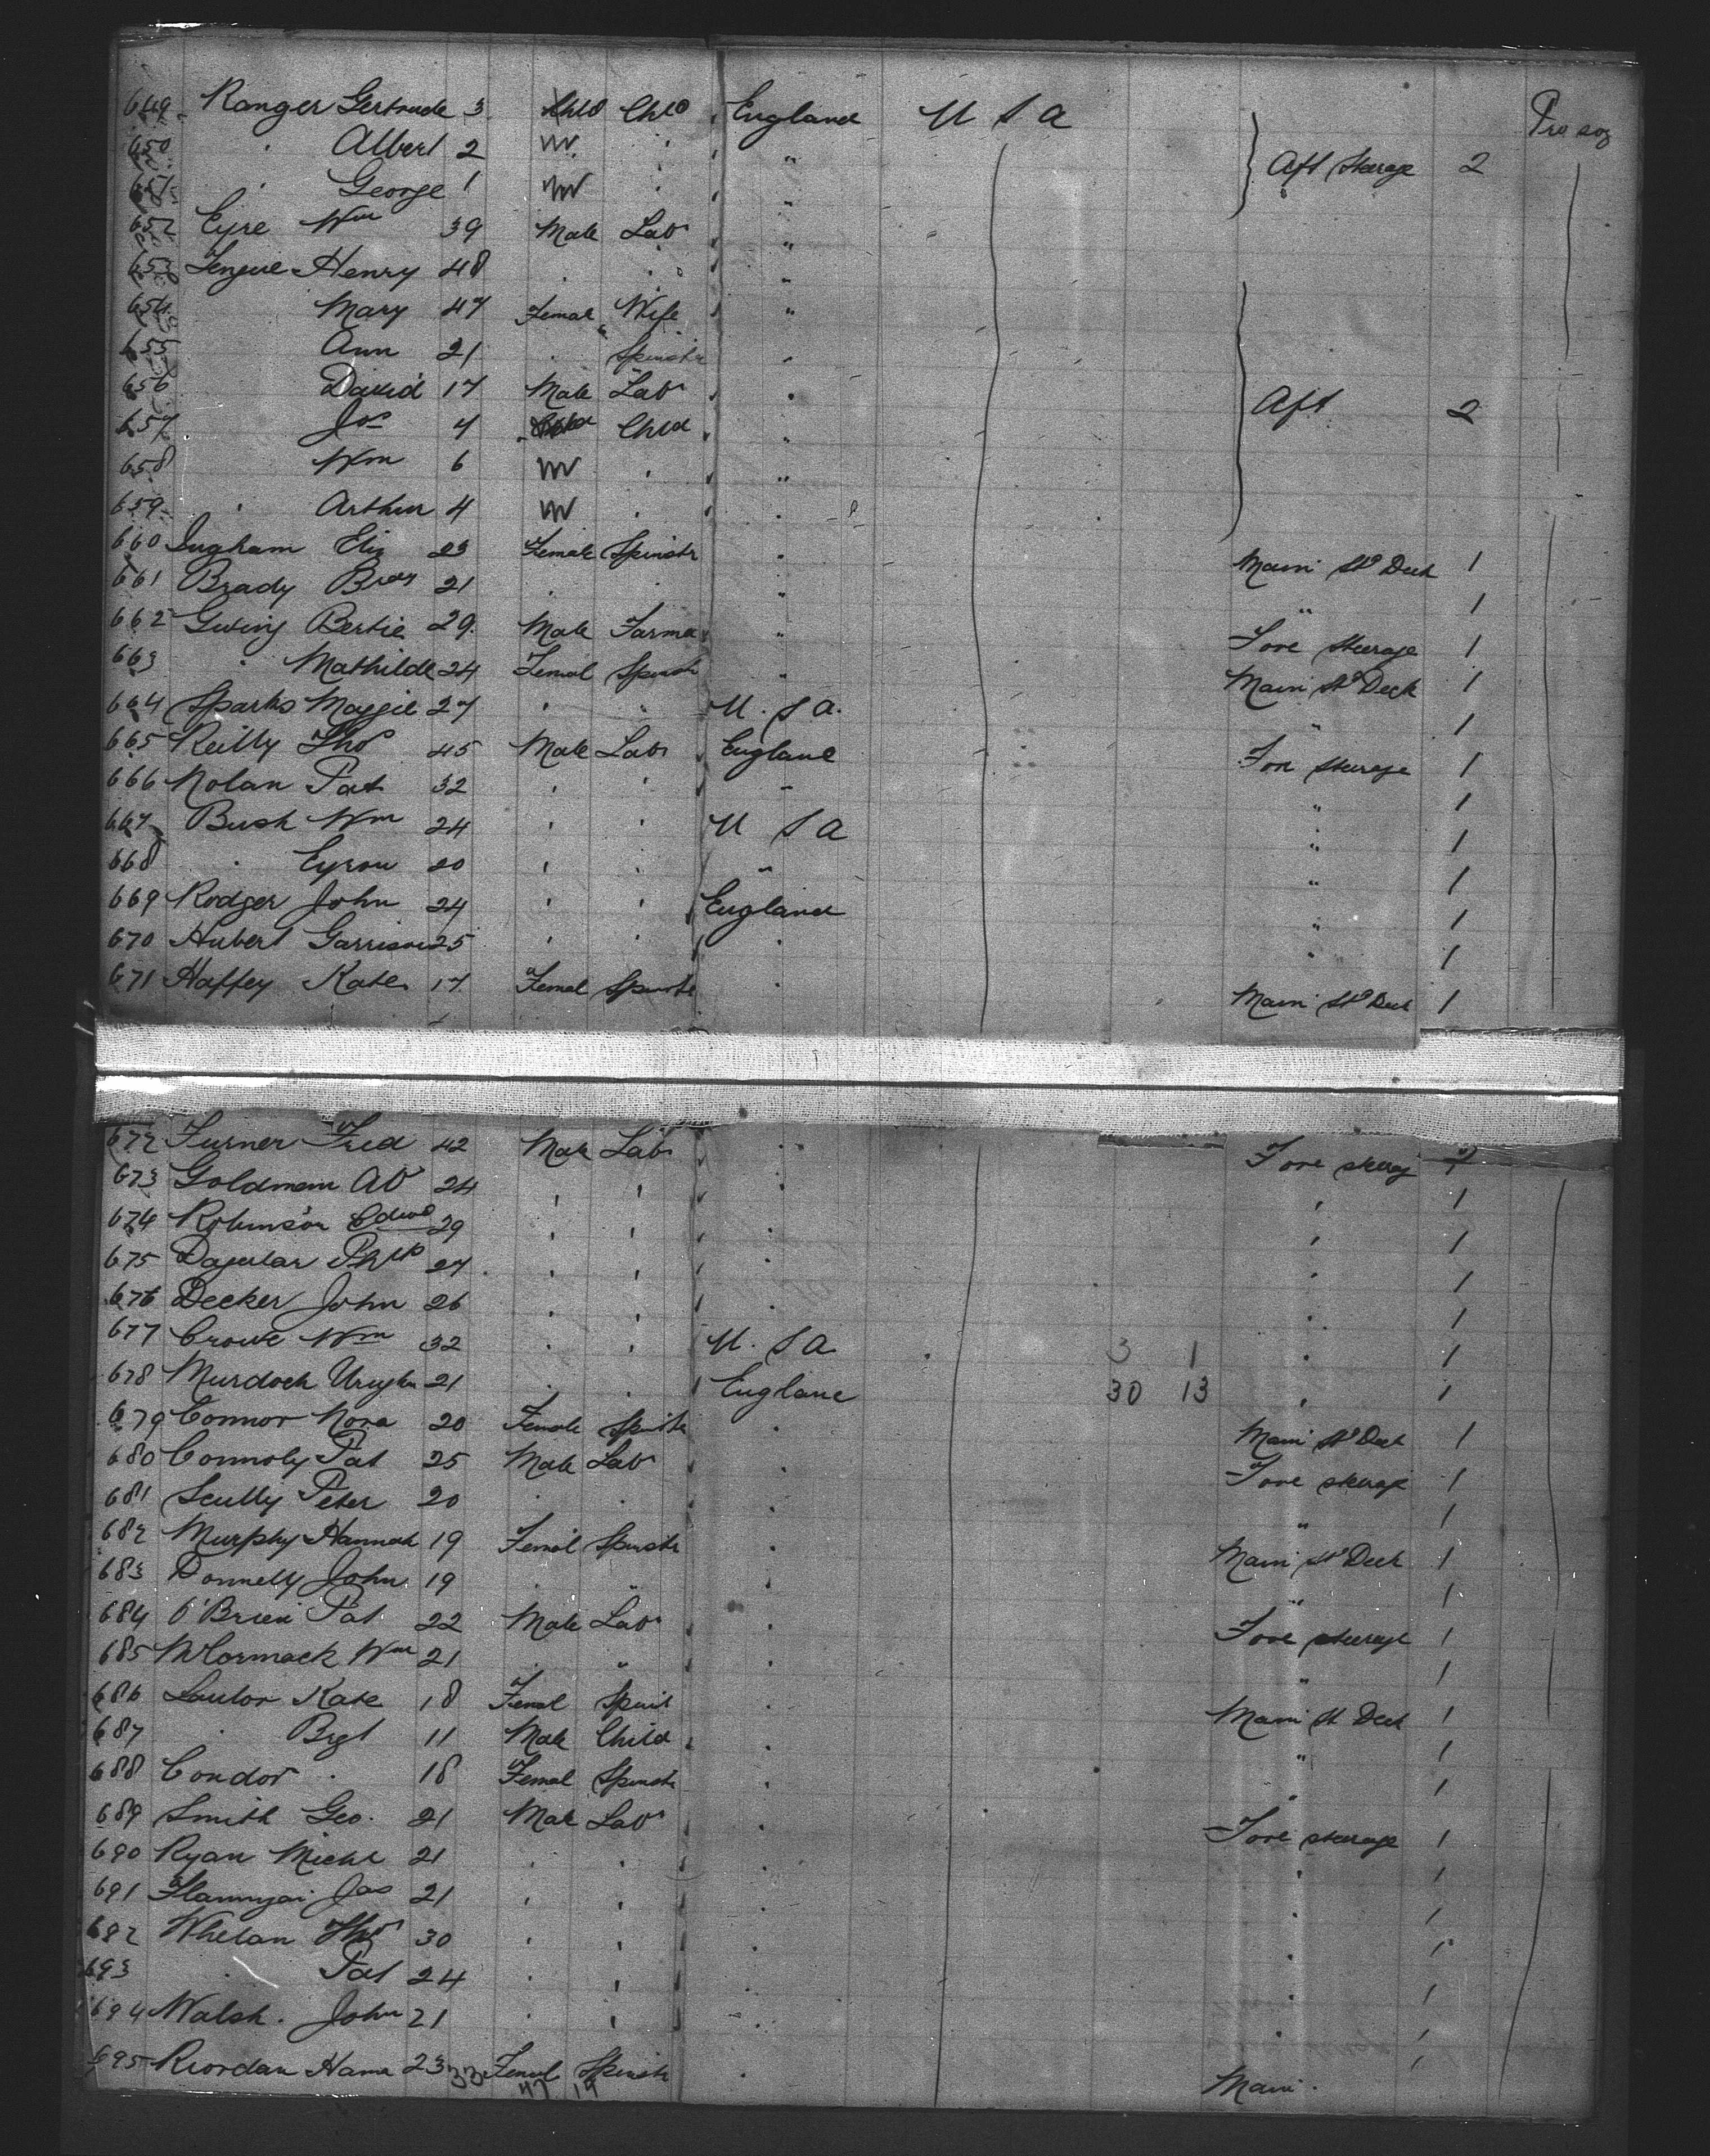 649 Ranger Gertrude 3 Chld Chld England U S A Pro sog
650 " Albert 2 M " " Aft Steerage 2
651 " George 1 M " "
652 Eyre Wm 39 Male Lab "
653 Henry 48 " " "
654 Mary 47 Femal Wife "
655 Ann 21 " Spinstr "
656 David 17 Male Lab " Aft 2
657 Jos 7 Chld "
658 Wm 6 M " "
659 " Arthur 4 M " "
660 Ingham Eliz 23 Female Spinstr " Main St Deck 1
661 Brady 21 " " " " 1
662 Bertie 29 Male Farmer " Fore Steerage 1
663 " Mathilde 24 Femal Spinstr " Main St Deck 1
664 Sparks Maggie 27 " " U.S.A. " 1
665 Reilly Tho 45 Male Lab England For Steerage 1
666 Nolan Pat 32 " " " " 1
667 Bush Wm 24 " " U S A " 1
668 " 20 " " " " 1
669 Rodger John 24 " " England " 1
670 Hubert Garrison 25 " " " " 1
671 Haffey Kate 17 Femal Spinstr " Main St Deck 1
672 Turner Fred 42 Male Lab " Fore steerag 1
673 Goldmann 24 " " " " 1
674 Robinson Edwd 29 " " " " 1
675 27 " " " " 1
676 Decker John 26 " " " " 1
677 Crowe Wm 32 " " U.S.A 3 1 " 1
678 Murdoch 21 " " England 30 13 " 1
679 Connor Nora 20 Female Spinstr " Main St Deck 1
680 Connoly Pat 25 Male Lab " Fore steerage 1
681 Scully Peter 20 " " " " 1
682 Murphy Hannah 19 Femal Spinstr " Main St Deck 1
683 Donnelly John 19 " " " " 1
684 O'Brien Pat 22 Male Lab " Fore steerage 1
685 McCormack Wm 21 " " " " 1
686 Lawlor Kate 18 Femal Spinst " Main St Deck 1
687 " Bgt 11 Male Child " " 1
688 Condor " 18 Femal Spinstr " " 1
689 Smith Geo. 21 Male Lab " Fore steerage 1
690 Ryan Michl 21 " " " " 1
691 Jas 21 " " " " 1
692 Whelan Tho 30 " " " " 1
693 " Pat 24 " " " " 1
694 Walsh. John 21 " " " " 1
695 Riordan Hana 23 Femal Spinstr " Main.
33 47 19